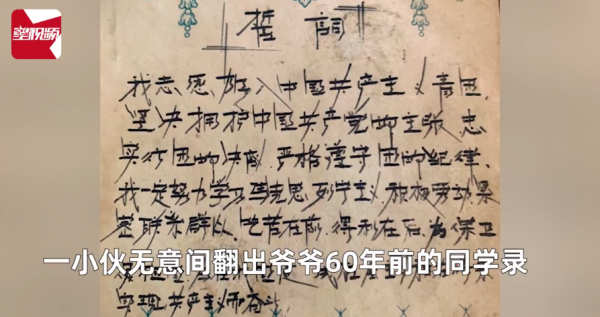 视频
誓詞
我志愿加入中国共产主义青团，
坚决拥护中国共产党的主张，忠
实行团的决议，严格遵守团的纪律，
我一定努力学习马克思列宁主义，积极劳动，
密联系群众，吃苦在前，得利在后，为保卫
一小伙无意间翻出爷爷60年前的同学录
实现共产主义而奋斗